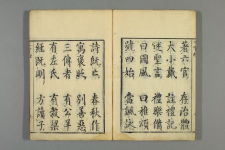 著六官 存治體
大小戴 註禮記
述聖言 禮樂備
曰國風 曰雅頌
號四詩 當諷詠
詩既亡 春秋作
寓褒貶 別善惡
三傳者 有公羊
有左氏 有穀梁
經既明 方讀子